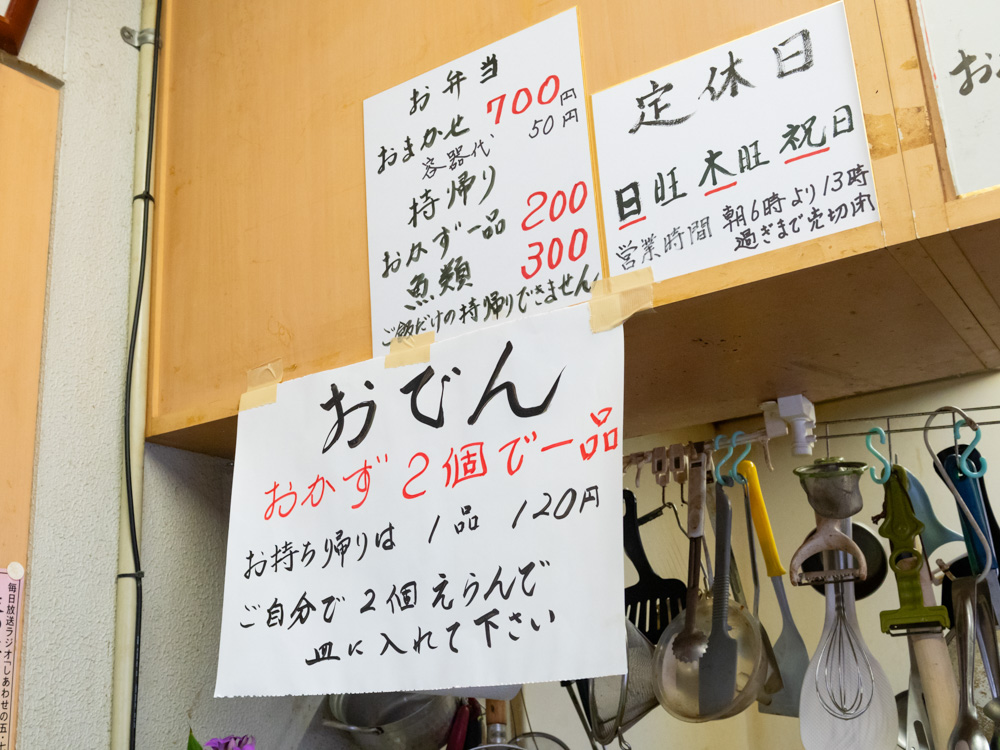 お弁当
おまかせ 700円
容器代 50円
持帰り
おかず一品 200
魚類 300
ご飯だけの持帰りできません
定休日
日旺 木旺 祝日
営業時間 朝6時より13時
過ぎまで売切閉
お
おでん
おかず2個で一品
お持ち帰りは 1品 120円
ご自分で2個えらんで
皿に入れて下さい
毎日放送ラジオ「しあわせの五・七